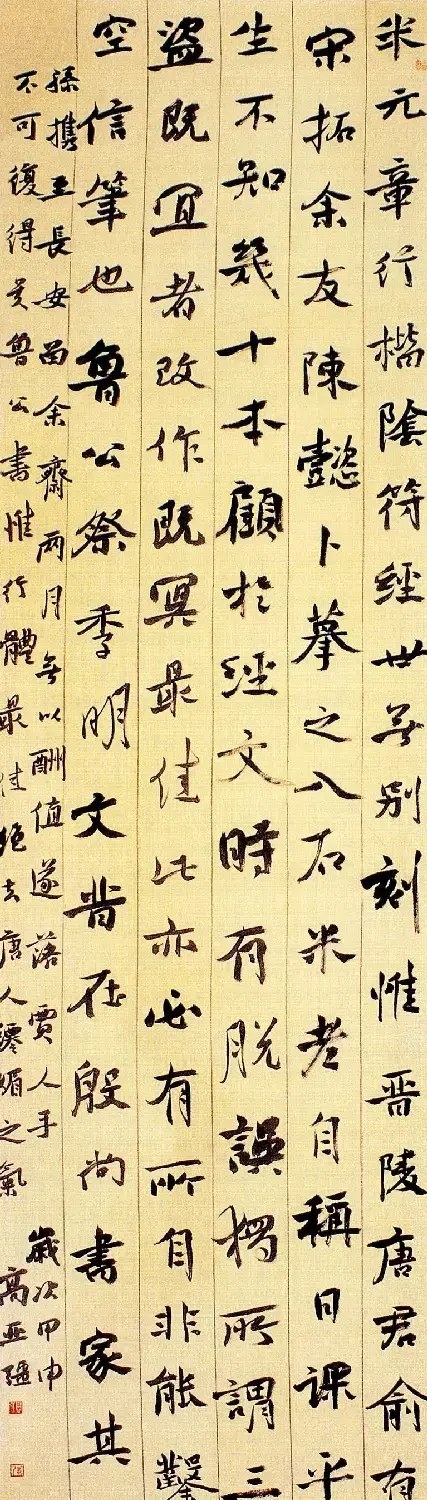 米元章行楷陰符經世無別刻惟晋陵唐君俞有
宋拓余友陳懿卜摹之入石米老自稱日課平
生不知幾十本顧於經文時有脱誤獨所謂三
盜既宜者改作既冥最佳此亦必有所自非能鑿
空信筆也魯公祭季明文昔在殷尚書家其
孫携至長安留余齋兩月無以酬值遂落賈人手
不可復得矣魯公書惟行體最佳絕去唐人媚之氣
歲次甲申
高亚